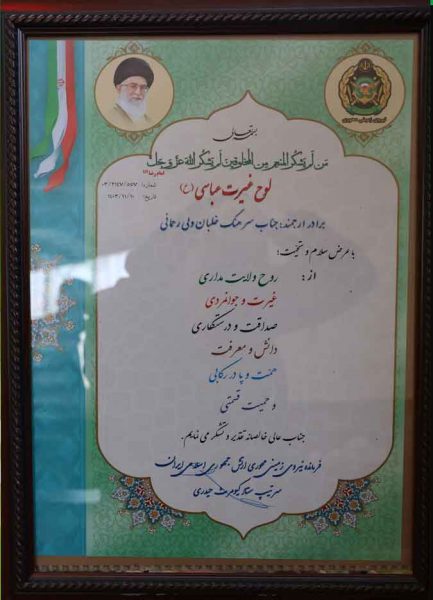 بسمه تعالی
مَن لَم یَشکُرِ المُنعِمَ مِنَ المَخلوقینَ لَم یَشکُرِ اللهَ عَزَّ وَ جَلَّ
امام رضا
لوح غیرت عباسی (ع)
شماره:
تاریخ: ۱۴۰۳/۱۱/۱۰
برادر ارجمند؛ جناب سرهنگ خلبان ولی رحمانی
با عرض سلام و تحیت؛
از: روح ولایت مداری
غیرت و جوانمردی
صداقت و درستکاری
دانش و معرفت
همت و پا در رکابی
و حمیت
جناب عالی خالصانه تقدیر و تشکر می نمایم.
فرمانده نیروی زمینی محوری ارتش جمهوری اسلامی ایران
سرتیپ ستاد کیومرث حیدری